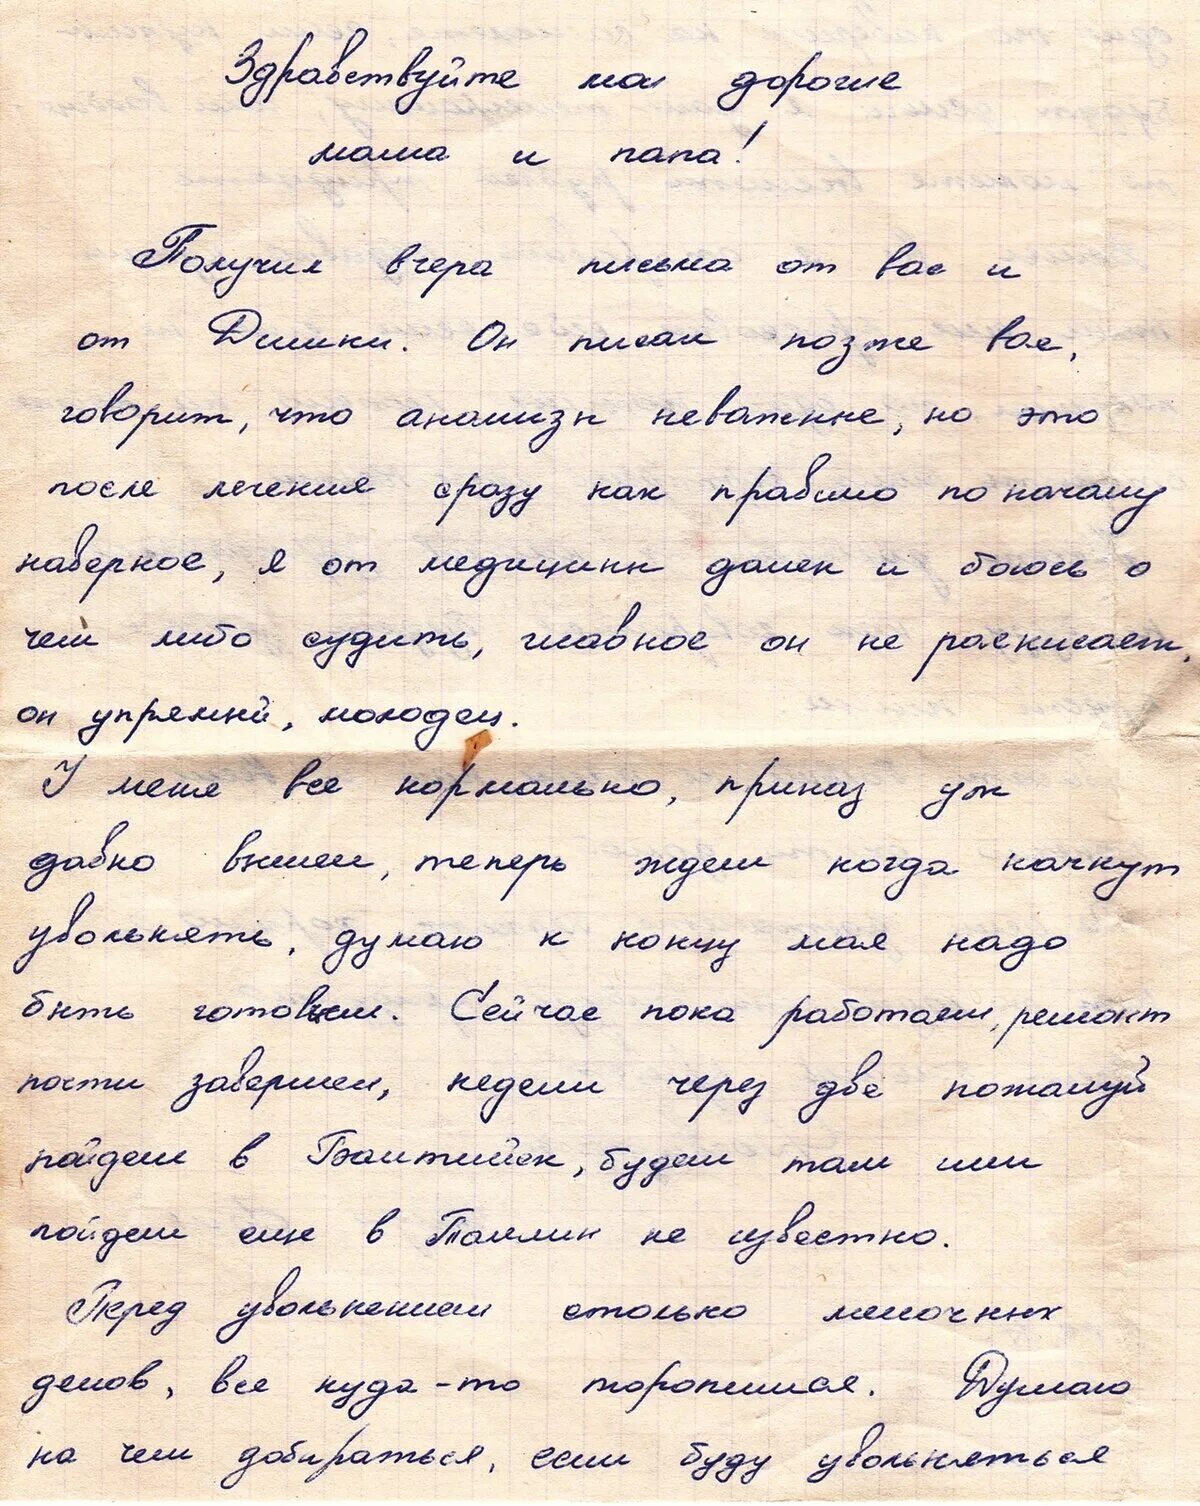 Здравствуйте мои дорогие
мама и папа!
Получил вчера письма от вас и
от Димки. Он писал позже вас,
говорит, что анализы неважные, но это
после лечения сразу как правило по началу
наверное, я от медицины далек и боюсь о
чем либо судить, главное он не раскисает,
он упрямый, молодец.
У меня все нормально, приказ уж
давно вышел, теперь ждем когда начнут
увольнять, думаю к концу мая надо
быть готовым. Сейчас пока работаем, ремонт
почти завершен, недели через две пожалуй
пойдем в Балтийск, будем там или
пойдем еще в Таллин не известно.
Перед увольнением столько мелочных
делов, все куда-то торопишься. Думаю
на чем добираться, если буду увольняться